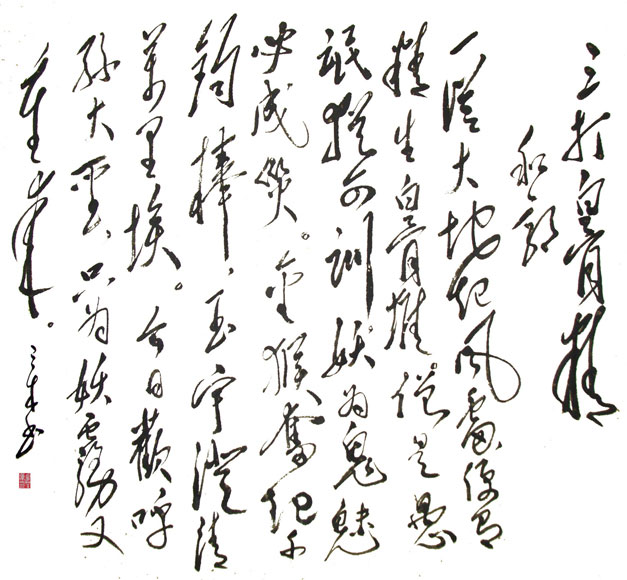 三打白骨精
和郭
一從大地起风雷便有
精生白骨堆。僧是愚
氓犹可训妖为鬼魅
必成災。金猴奮起千
鈞棒，玉宇澄清
萬里埃。今日歡呼
孫大聖只为妖霧又
重来。
书